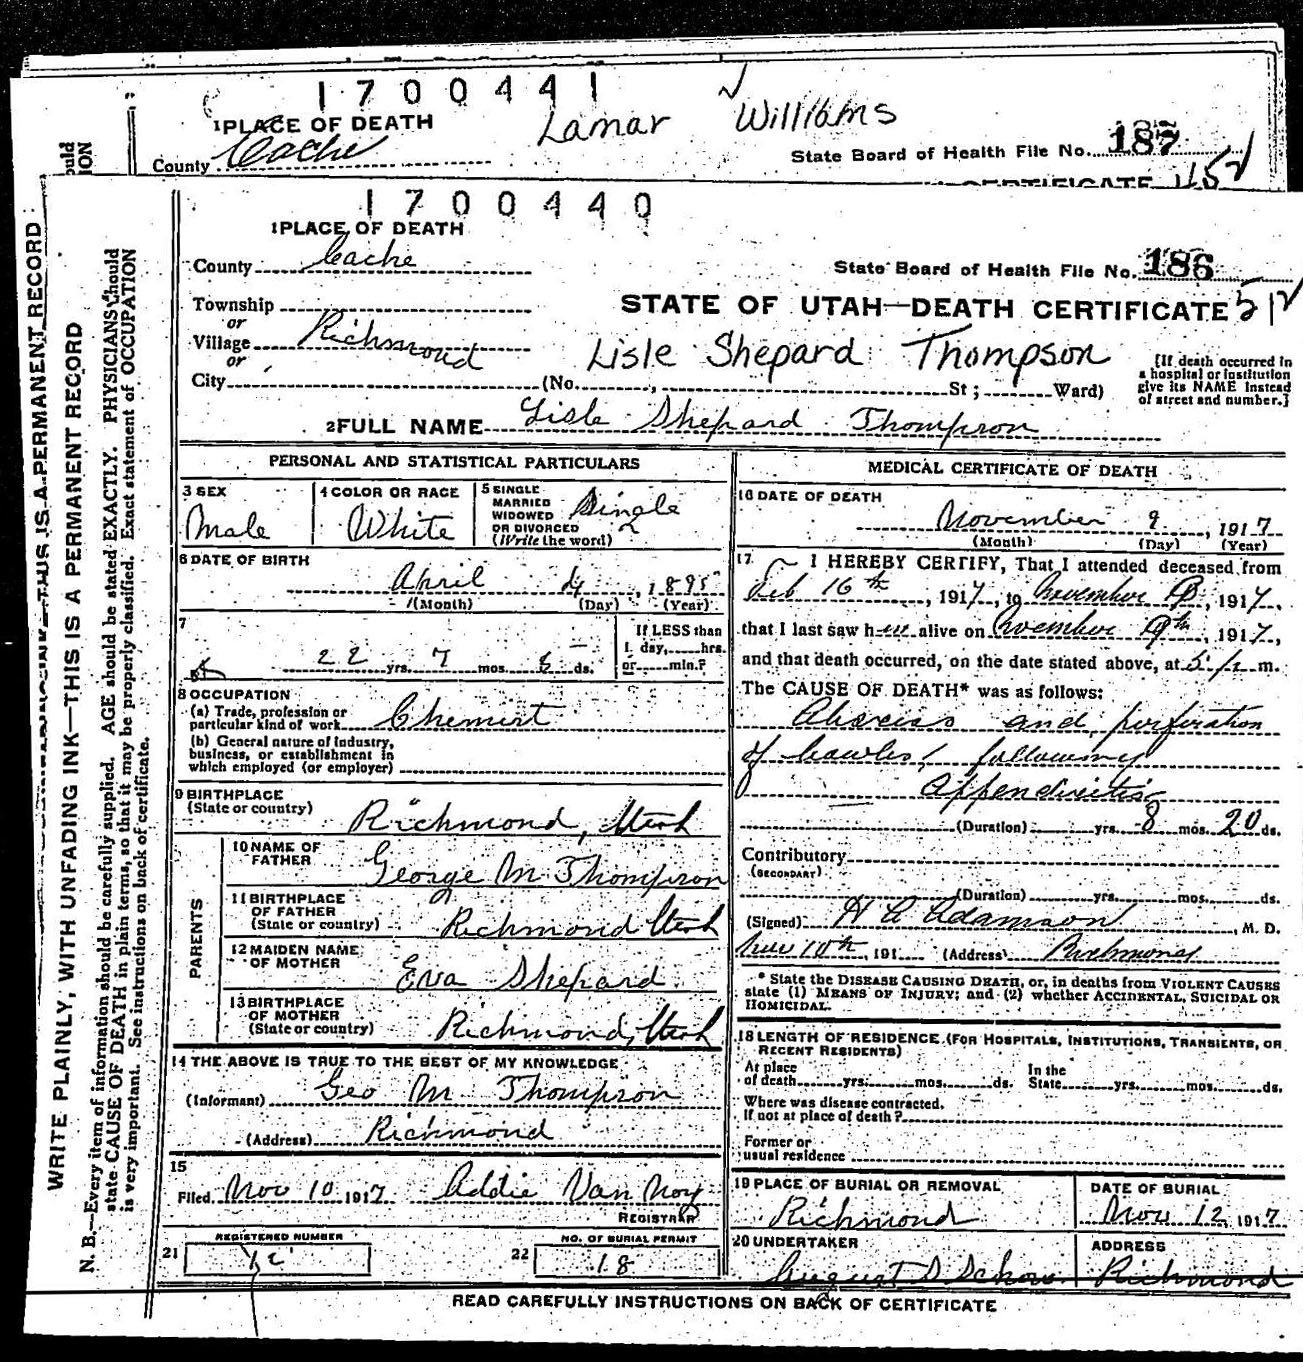 1700441
1 PLACE OF DEATH
Lamar Williams
County Cache
State Board of Health File No. 187
CERTIFICATE 452
1700440
1 PLACE OF DEATH
County Cache
State Board of Health File No. 186
Township
STATE OF UTAH—DEATH CERTIFICATE 512
or
Village Richmond
or
Lisle Shepard Thompson
City (No. , St ; Ward)
[If death occurred in
a hospital or institution
give its NAME instead
of street and number.]
2 FULL NAME Lisle Shepard Thompson
PERSONAL AND STATISTICAL PARTICULARS
3 SEX
Male
4 COLOR OR RACE
White
5 SINGLE
MARRIED
WIDOWED
OR DIVORCED
(Write the word)
Single
6 DATE OF BIRTH
April 4, 1895
(Month) (Day) (Year)
7
22 yrs. 7 mos. ds.
If LESS than
1 day, hrs.
or min.?
8 OCCUPATION
(a) Trade, profession or
particular kind of work Chemist
(b) General nature of industry,
business, or establishment in
which employed (or employer)
9 BIRTHPLACE
(State or country)
Richmond, Utah
PARENTS
10 NAME OF
FATHER
George M Thompson
11 BIRTHPLACE
OF FATHER
(State or country)
Richmond Utah
12 MAIDEN NAME
OF MOTHER
Eva Shepard
13 BIRTHPLACE
OF MOTHER
(State or country)
Richmond, Utah
14 THE ABOVE IS TRUE TO THE BEST OF MY KNOWLEDGE
(Informant) Geo M Thompson
(Address) Richmond
15
Filed Nov 10 1917 Addie Van Noy
REGISTRAR
21
REGISTERED NUMBER
12
22
NO. OF BURIAL PERMIT
18
MEDICAL CERTIFICATE OF DEATH
16 DATE OF DEATH
November 9, 1917
(Month) (Day) (Year)
17 I HEREBY CERTIFY, That I attended deceased from
Feb 16th, 1917, to November 9, 1917,
that I last saw him alive on November 9th, 1917,
and that death occurred, on the date stated above, at m.
The CAUSE OF DEATH* was as follows:
Abscess and perforation
of bowles, following
Appendicitis
(Duration) yrs. 8 mos. 20 ds.
Contributory
(SECONDARY)
(Duration) yrs. mos. ds.
(Signed) Adamson, M. D.
Nov 10th, 191 (Address) Richmond
* State the DISEASE CAUSING DEATH, or, in deaths from VIOLENT CAUSES
state (1) MEANS OF INJURY; and (2) whether ACCIDENTAL, SUICIDAL OR
HOMICIDAL.
18 LENGTH OF RESIDENCE (FOR HOSPITALS, INSTITUTIONS, TRANSIENTS, OR
RECENT RESIDENTS)
At place
of death yrs. mos. ds.
In the
State yrs. mos. ds.
Where was disease contracted,
If not at place of death?
Former or
usual residence
19 PLACE OF BURIAL OR REMOVAL
Richmond
DATE OF BURIAL
Nov 12, 1917
20 UNDERTAKER
August S Schow
ADDRESS
Richmond
READ CAREFULLY INSTRUCTIONS ON BACK OF CERTIFICATE
WRITE PLAINLY, WITH UNFADING INK—THIS IS A PERMANENT RECORD
THIS IS A PERMANENT RECORD
N. B.—Every item of information should be carefully supplied. AGE should be stated EXACTLY. PHYSICIANS should
state CAUSE OF DEATH in plain terms, so that it may be properly classified. Exact statement of OCCUPATION
is very important. See instructions on back of certificate.